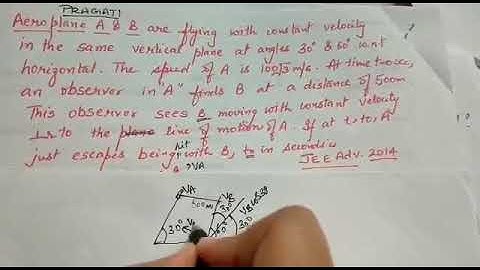 PRAGATI
Aeroplane A & B are flying with constant velocity
in the same vertical plane at angles 30° & 60° w.r.t
horizontal. The speed of A is 100√3 m/s. At time t=0sec,
an observer in "A" finds B at a distance of 500m
This observer sees B moving with constant velocity
⊥r to the line of motion of A. If at t=to, A
just escapes being hit with B, to in seconds is
JEE Adv. 2014
VA
500m
VB
30°
30°
60°
30°